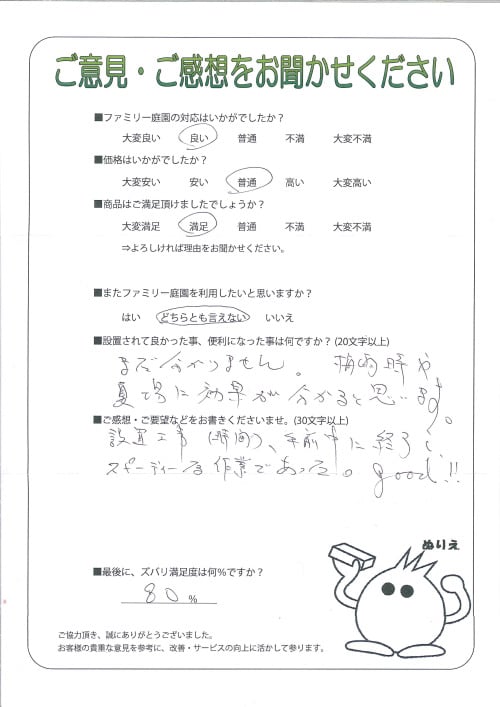 ご意見・ご感想をお聞かせください
■ファミリー庭園の対応はいかがでしたか？
大変良い 良い 普通 不満 大変不満
■価格はいかがでしたか？
大変安い 安い 普通 高い 大変高い
■商品はご満足頂けましたでしょうか？
大変満足 満足 普通 不満 大変不満
⇒よろしければ理由をお聞かせください。
■またファミリー庭園を利用したいと思いますか？
はい どちらとも言えない いいえ
■設置されて良かった事、便利になった事は何ですか？(20文字以上)
まだ分かりません。 梅雨時や
夏場に効果が分かると思います。
■ご感想・ご要望などをお書きくださいませ。(30文字以上)
設置工事(時間)、午前中に終了し、
スピーディーな作業であった。good!!
ぬりえ
■最後に、ズバリ満足度は何％ですか？
80 %
ご協力頂き、誠にありがとうございました。
お客様の貴重な意見を参考に、改善・サービスの向上に活かして参ります。